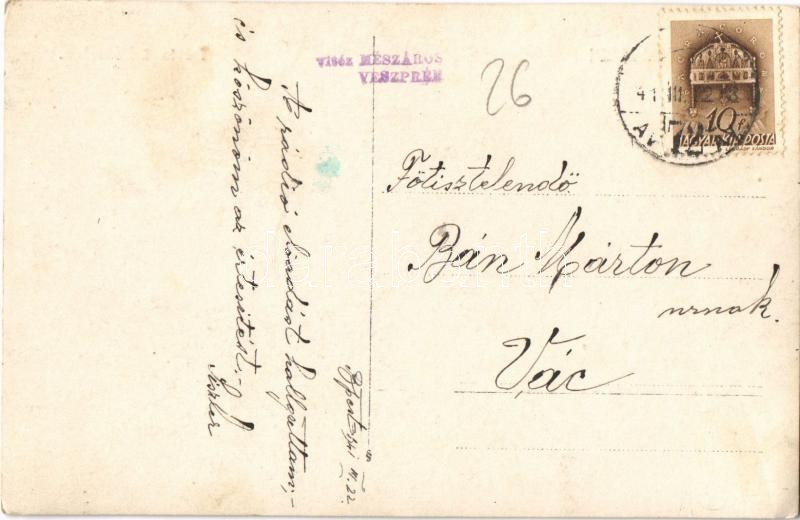 A rádió előadást hallgattam,-
és köszönöm az értesítést.-
Bpest 941
vitéz MÉSZÁROS
VESZPRÉM
26
10
MAGYAR KIR. POSTA
72
Főtisztelendő
Bán Márton
urnak.
Vác